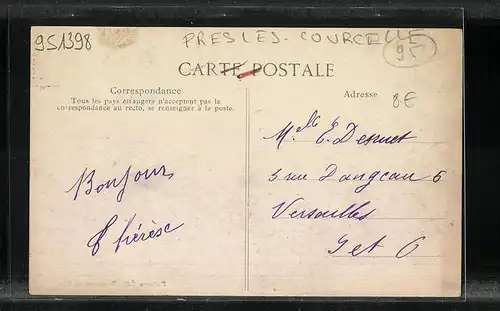 951398
PRESLES-COURCELLE
95
CARTE POSTALE
Correspondance
Tous les pays étrangers n'acceptent pas la
correspondance au recto, se renseigner à la poste.
Adresse
8€
Mlle E. Desruet
5 rue Dangeau 6
Versailles
Set O
Bonjour
Thérèse